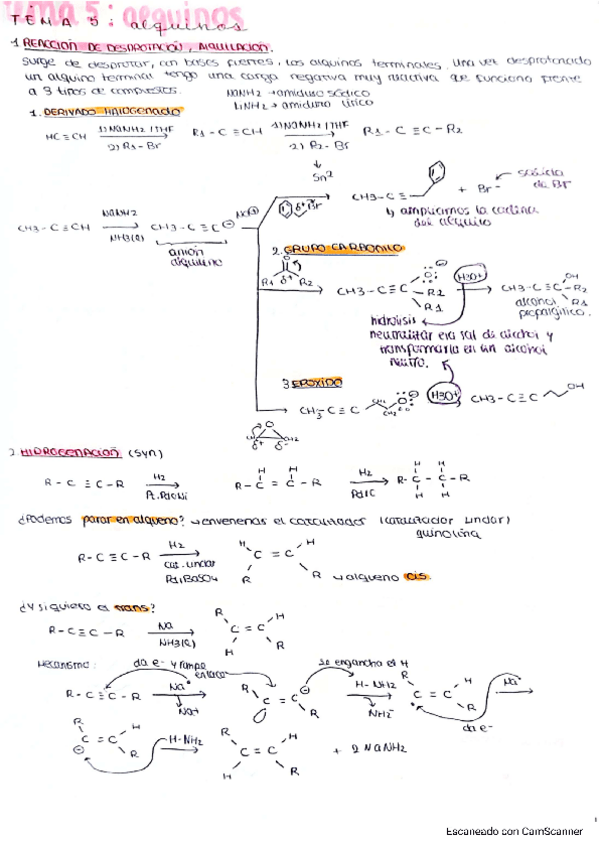 TEMA 5: alquinos
1 REACCIÓN DE DESPROTACIÓN, ALQUILACION.
Surge de desprotar, con bases fuertes, los alquinos terminales. Una vez desprotonado
un alquino terminal tengo una carga negativa muy reactiva que funciona frente
a 3 tipos de compuestos.
NaNH2 → amiduro sódico
LiNH2 → amiduro lítico
1. DERIVADO HALOGENADO
HC≡CH 1) NaNH2 / THF 2) R1-Br R1-C≡CH 1) NaNH2 / THF 2) R2-Br R1-C≡C-R2
Sn2
CH3-C≡ + Br- → salida de Br
↳ ampliamos la cadena del alquino
CH3-C≡CH NaNH2 NH3(l) CH3-C≡C⊖ Na⊕
δ+ Br
anión alquino
2. GRUPO CARBONILO
R1 δ+ R2
CH3-C≡C-R2 R1 H3O+ CH3-C≡C-R2 OH R1
alcohol propargílico.
hidrólisis
neutralizar esa sal de alcohol y
transformarla en un alcohol
neutro.
3 EPÓXIDO
CH3-C≡C H3O+ CH3-C≡C OH
2 HIDROGENACIÓN (syn)
R-C≡C-R H2 R-C=C-R H2 Pd/C R-C-C-R
¿Podemos parar en alqueno? → envenenas el catalizador (catalizador Lindlar)
quinolina
R-C≡C-R H2 cat. Lindlar Pd/BaSO4 C=C R R → alqueno cis
¿Y si quiero el trans?
R-C≡C-R Na NH3(l) R C=C H H R
Mecanismo: da e- y rompe enlace
se engancha el H
R-C≡C-R Na• Na+ R C=C⊖ R H-NH2 NH2- R C=C H R Na
da e-
R C=C H R H-NH2 R C=C H H R + 2 NaNH2
Escaneado con CamScanner